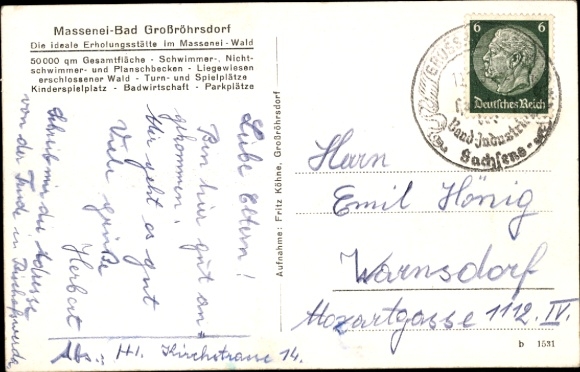 Massenei-Bad Großröhrsdorf
Die ideale Erholungsstätte im Massenei-Wald
50000 qm Gesamtfläche - Schwimmer-, Nicht-
schwimmer- und Planschbecken - Liegewiesen
erschlossener Wald - Turn- und Spielplätze
Kinderspielplatz - Badwirtschaft - Parkplätze
Liebe Eltern!
Bin hier gut an-
gekommen,
Mir geht es gut
Viele Grüße
Herbert
Schreib mir die Adresse
von der Trude in Bischofswerda
Abs.: H. Kirchstrasse 14.
Aufnahme: Fritz Köhne, Großröhrsdorf
6 6
Deutsches Reich
GROSS
Band-Industrie
Sachsens
Herrn
Emil Hönig
Warnsdorf
Mozartgasse 1112. IV.
b 1531